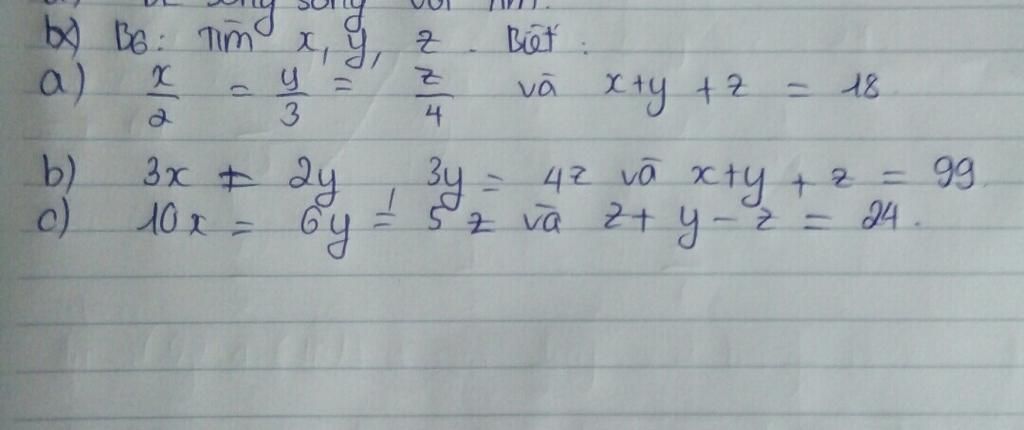 song song với
b) B6: Tìm x, y, z. Biết:
a) x/2 = y/3 = z/4 và x+y+z = 18
b) 3x = 2y, 3y = 4z và x+y+z = 99
c) 10x = 6y = 5z và z+y-z = 24.